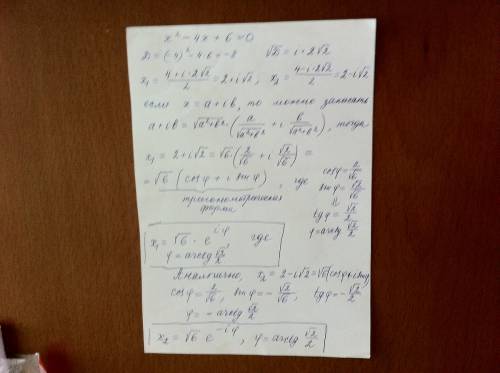 x² - 4x + 6 = 0
D = (-4)² - 4·6 = -8   √D = i·2√2
x₁ = (4 + i·2√2)/2 = 2 + i√2, x₂ = (4 - i·2√2)/2 = 2 - i√2
если x = a + ib, то можно записать
a + ib = √(a²+b²) · (a/√(a²+b²) + i b/√(a²+b²)), тогда
x₁ = 2 + i√2 = √6 (2/√6 + i √2/√6) =
= √6 (cos φ + i sin φ), где
тригонометрическая
форма
cos φ = 2/√6
sin φ = √2/√6
⇓
tg φ = √2/2
φ = arctg √2/2
x₁ = √6 · e^(iφ) где
φ = arctg √2/2
Аналогично, x₂ = 2 - i√2 = √6 (cos φ + i sin φ)
cos φ = 2/√6, sin φ = - √2/√6, tg φ = - √2/2
φ = - arctg √2/2
x₂ = √6 e^(-iφ), φ = arctg √2/2